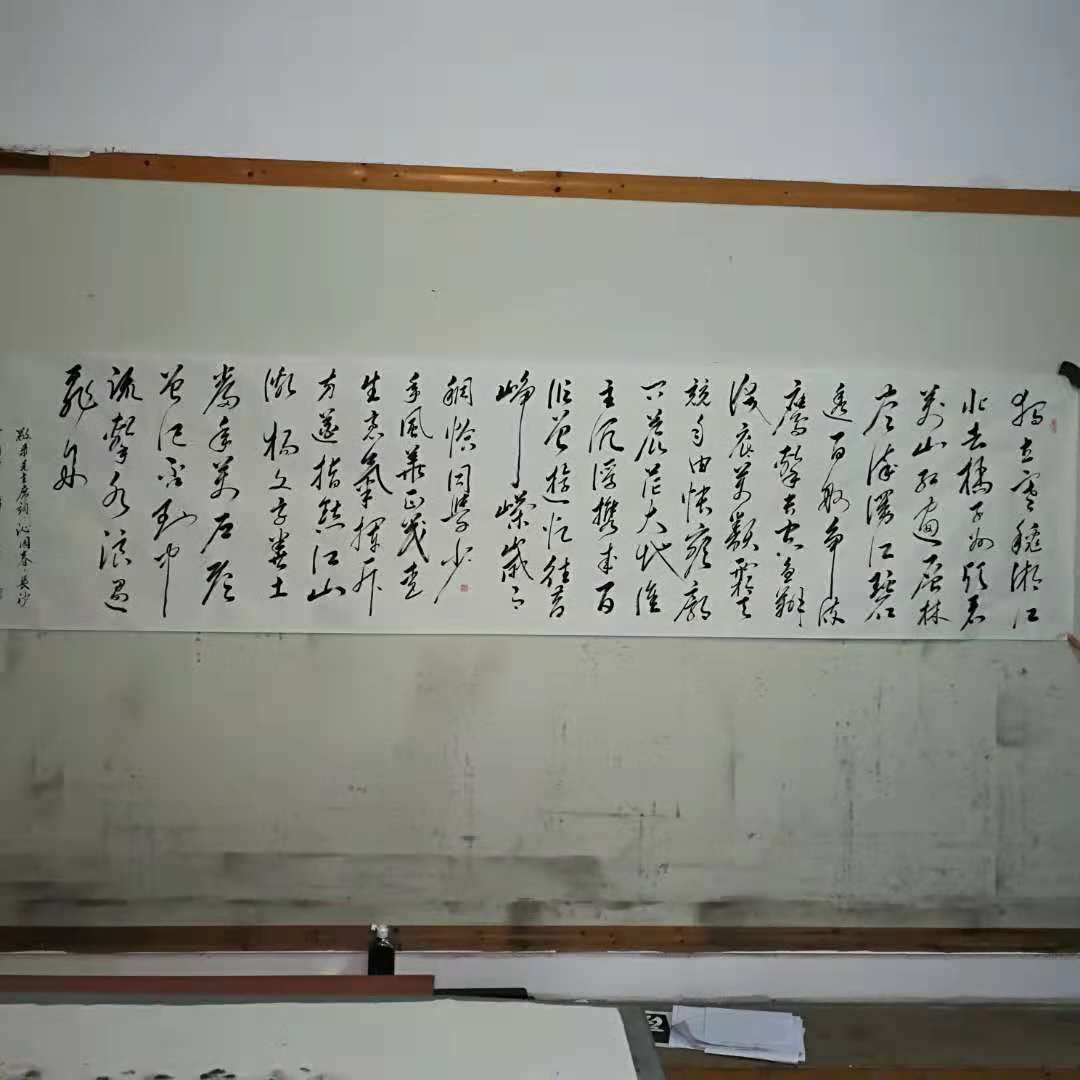 獨立寒穐湘江
北去橘子洲頭看
萬山紅遍層林
盡染漫江碧
透百舸争流
鷹擊長空魚翔
淺底萬類霜天
競自由悵寥廓
问蒼茫大地谁
主沉浮携来百
侣曾遊忆往昔
峥嵘歲月
稠恰同學少
年風華正茂書
生意氣揮斥
方遒指點江山
激揚文字糞土
當年萬户侯
曾记否到中
流擊水浪遏
飛舟
毛主席词沁園春長沙